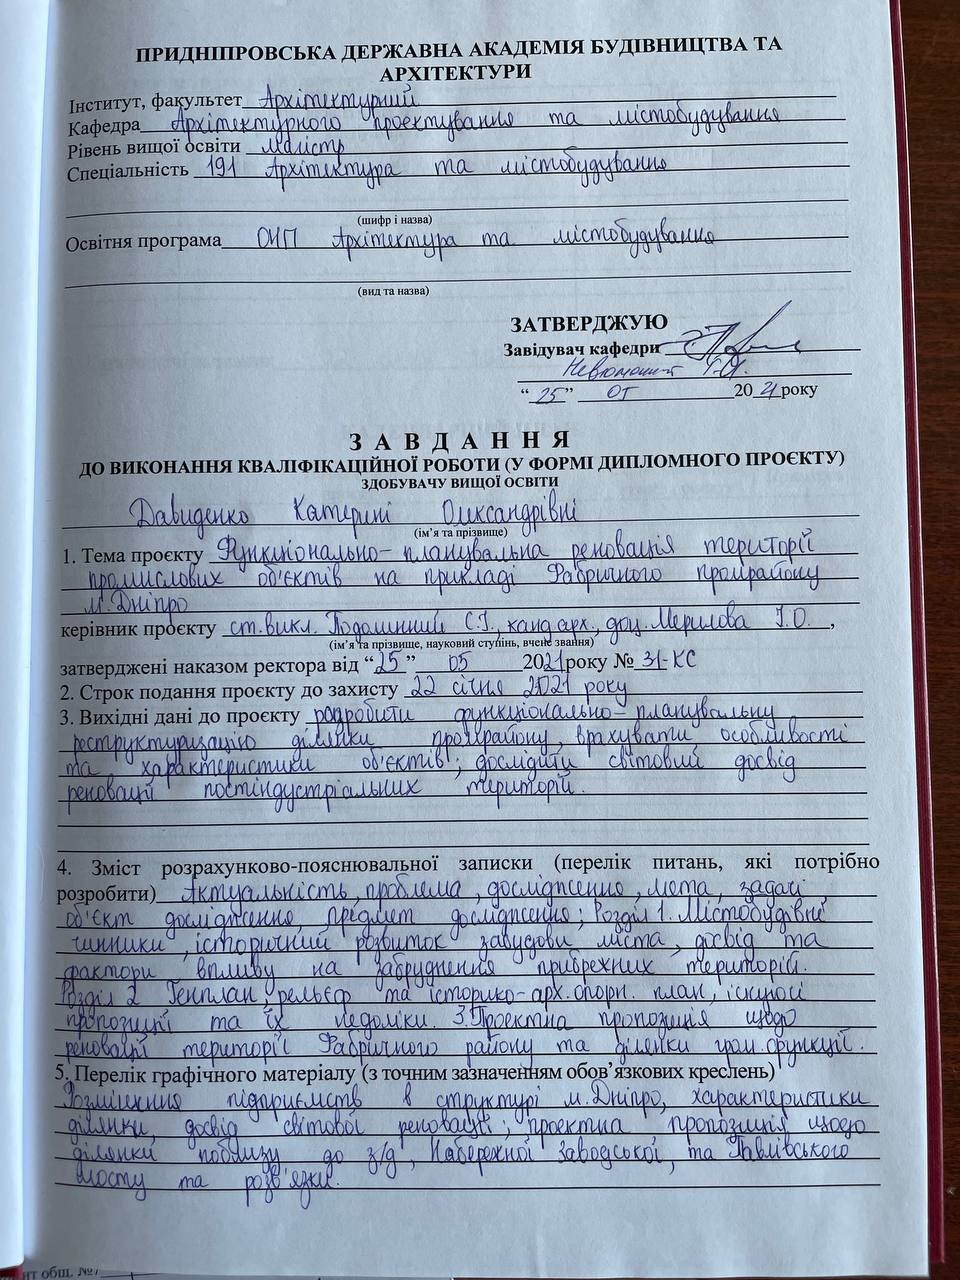 ПРИДНІПРОВСЬКА ДЕРЖАВНА АКАДЕМІЯ БУДІВНИЦТВА ТА
АРХІТЕКТУРИ
Інститут, факультет Архітектурний
Кафедра Архітектурного проектування та містобудування
Рівень вищої освіти магістр
Спеціальність 191 Архітектура та містобудування
(шифр і назва)
Освітня програма ОНП Архітектура та містобудування
(вид та назва)
ЗАТВЕРДЖУЮ
Завідувач кафедри
“ 25 ” 2021 року
З А В Д А Н Н Я
ДО ВИКОНАННЯ КВАЛІФІКАЦІЙНОЇ РОБОТИ (У ФОРМІ ДИПЛОМНОГО ПРОЄКТУ)
ЗДОБУВАЧУ ВИЩОЇ ОСВІТИ
Давиденко Катерині Олександрівні
(ім’я та прізвище)
1. Тема проєкту Функціонально-планувальна реновація території
промислових об'єктів на прикладі Фабричного промрайону
м. Дніпро
керівник проєкту ст. викл. Подолинний С.І., канд. арх., доц. Мерилова І.О. ,
(ім’я та прізвище, науковий ступінь, вчене звання)
затверджені наказом ректора від “25” 05 2021 року № 31-КС
2. Строк подання проєкту до захисту 22 січня 2021 року
3. Вихідні дані до проєкту розробити функціонально-планувальну
реструктуризацію ділянки промрайону, врахувати особливості
та характеристики об'єктів; дослідити світовий досвід
реновації постіндустріальних територій.
4. Зміст розрахунково-пояснювальної записки (перелік питань, які потрібно
розробити) Актуальність, проблема, дослідження, мета, задачі
об'єкт дослідження, предмет дослідження; Розділ 1. Містобудівні
чинники, історичний розвиток забудови міста, досвід та
фактори впливу на забруднення прибрежних територій.
Розділ 2 Генплан, рельєф та історико-арх. опорн. план, існуючі
пропозиції та їх недоліки. 3. Проектна пропозиція щодо
реновації території Фабричного району та ділянки гром. функції.
5. Перелік графічного матеріалу (з точним зазначенням обов’язкових креслень)
Розміщення підприємств в структурі м. Дніпро, характеристики
ділянки, досвід світової реновації; проектна пропозиція щодо
ділянки поблизу до з/д, Набережної Заводської, та Павлівського
мосту та розв'язки.
общ. №